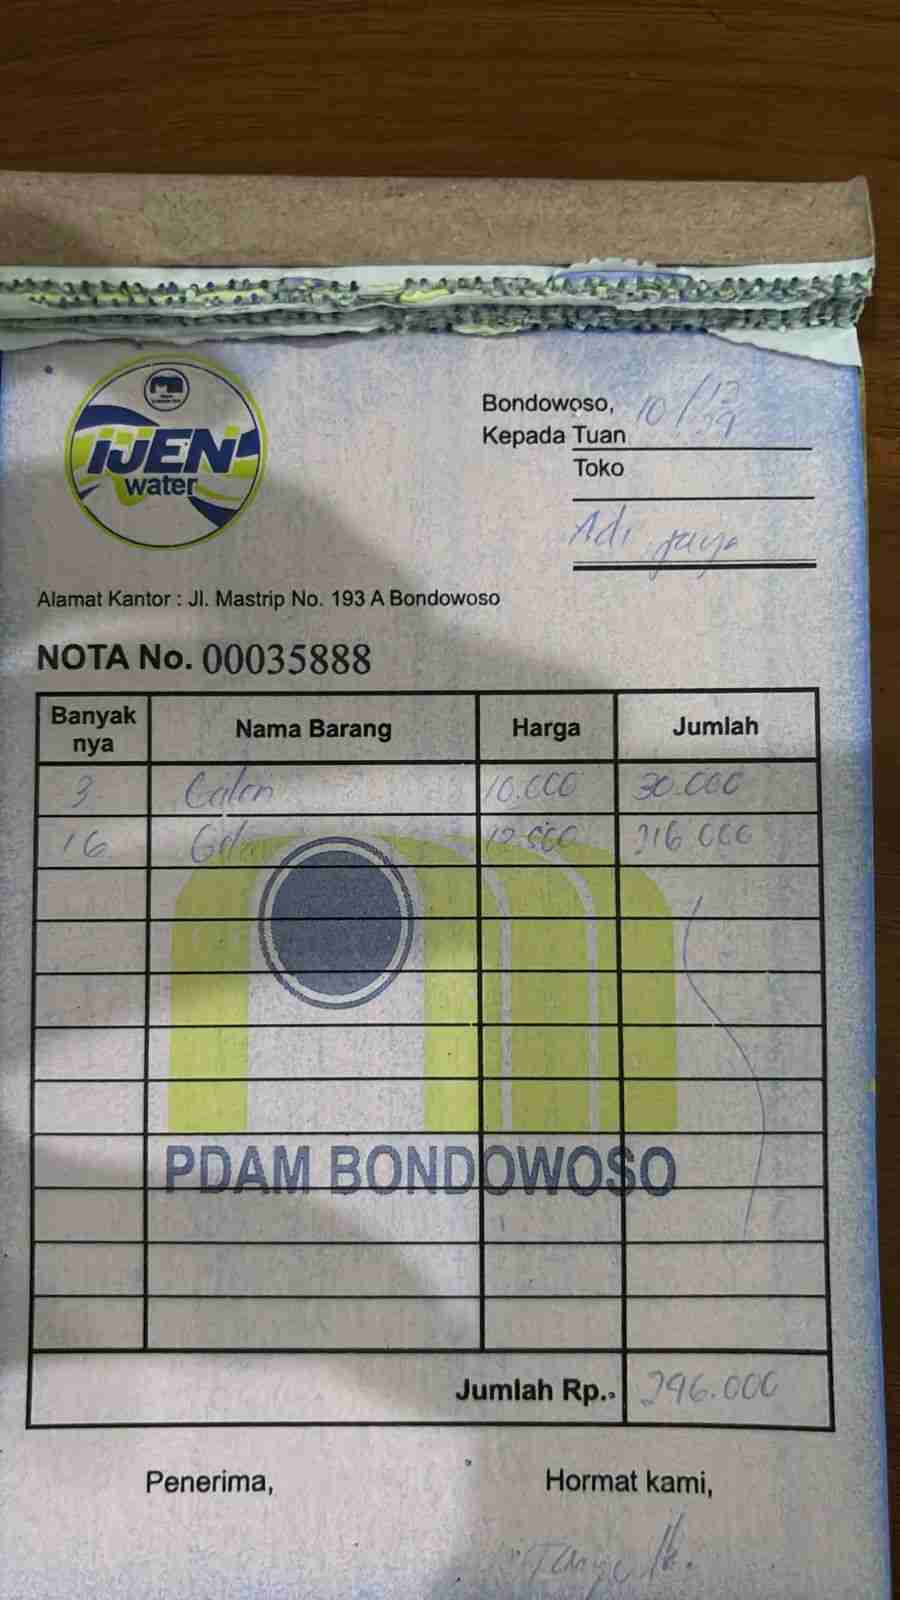 IJEN
water
Bondowoso, 10/12
Kepada Tuan
Toko
Adi jaya
Alamat Kantor : Jl. Mastrip No. 193 A Bondowoso
NOTA No. 00035888
Banyak nya Nama Barang Harga Jumlah
3 Galon 10.000 30.000
16 12.500 216.000
PDAM BONDOWOSO
Jumlah Rp.. 296.000
Penerima, Hormat kami,